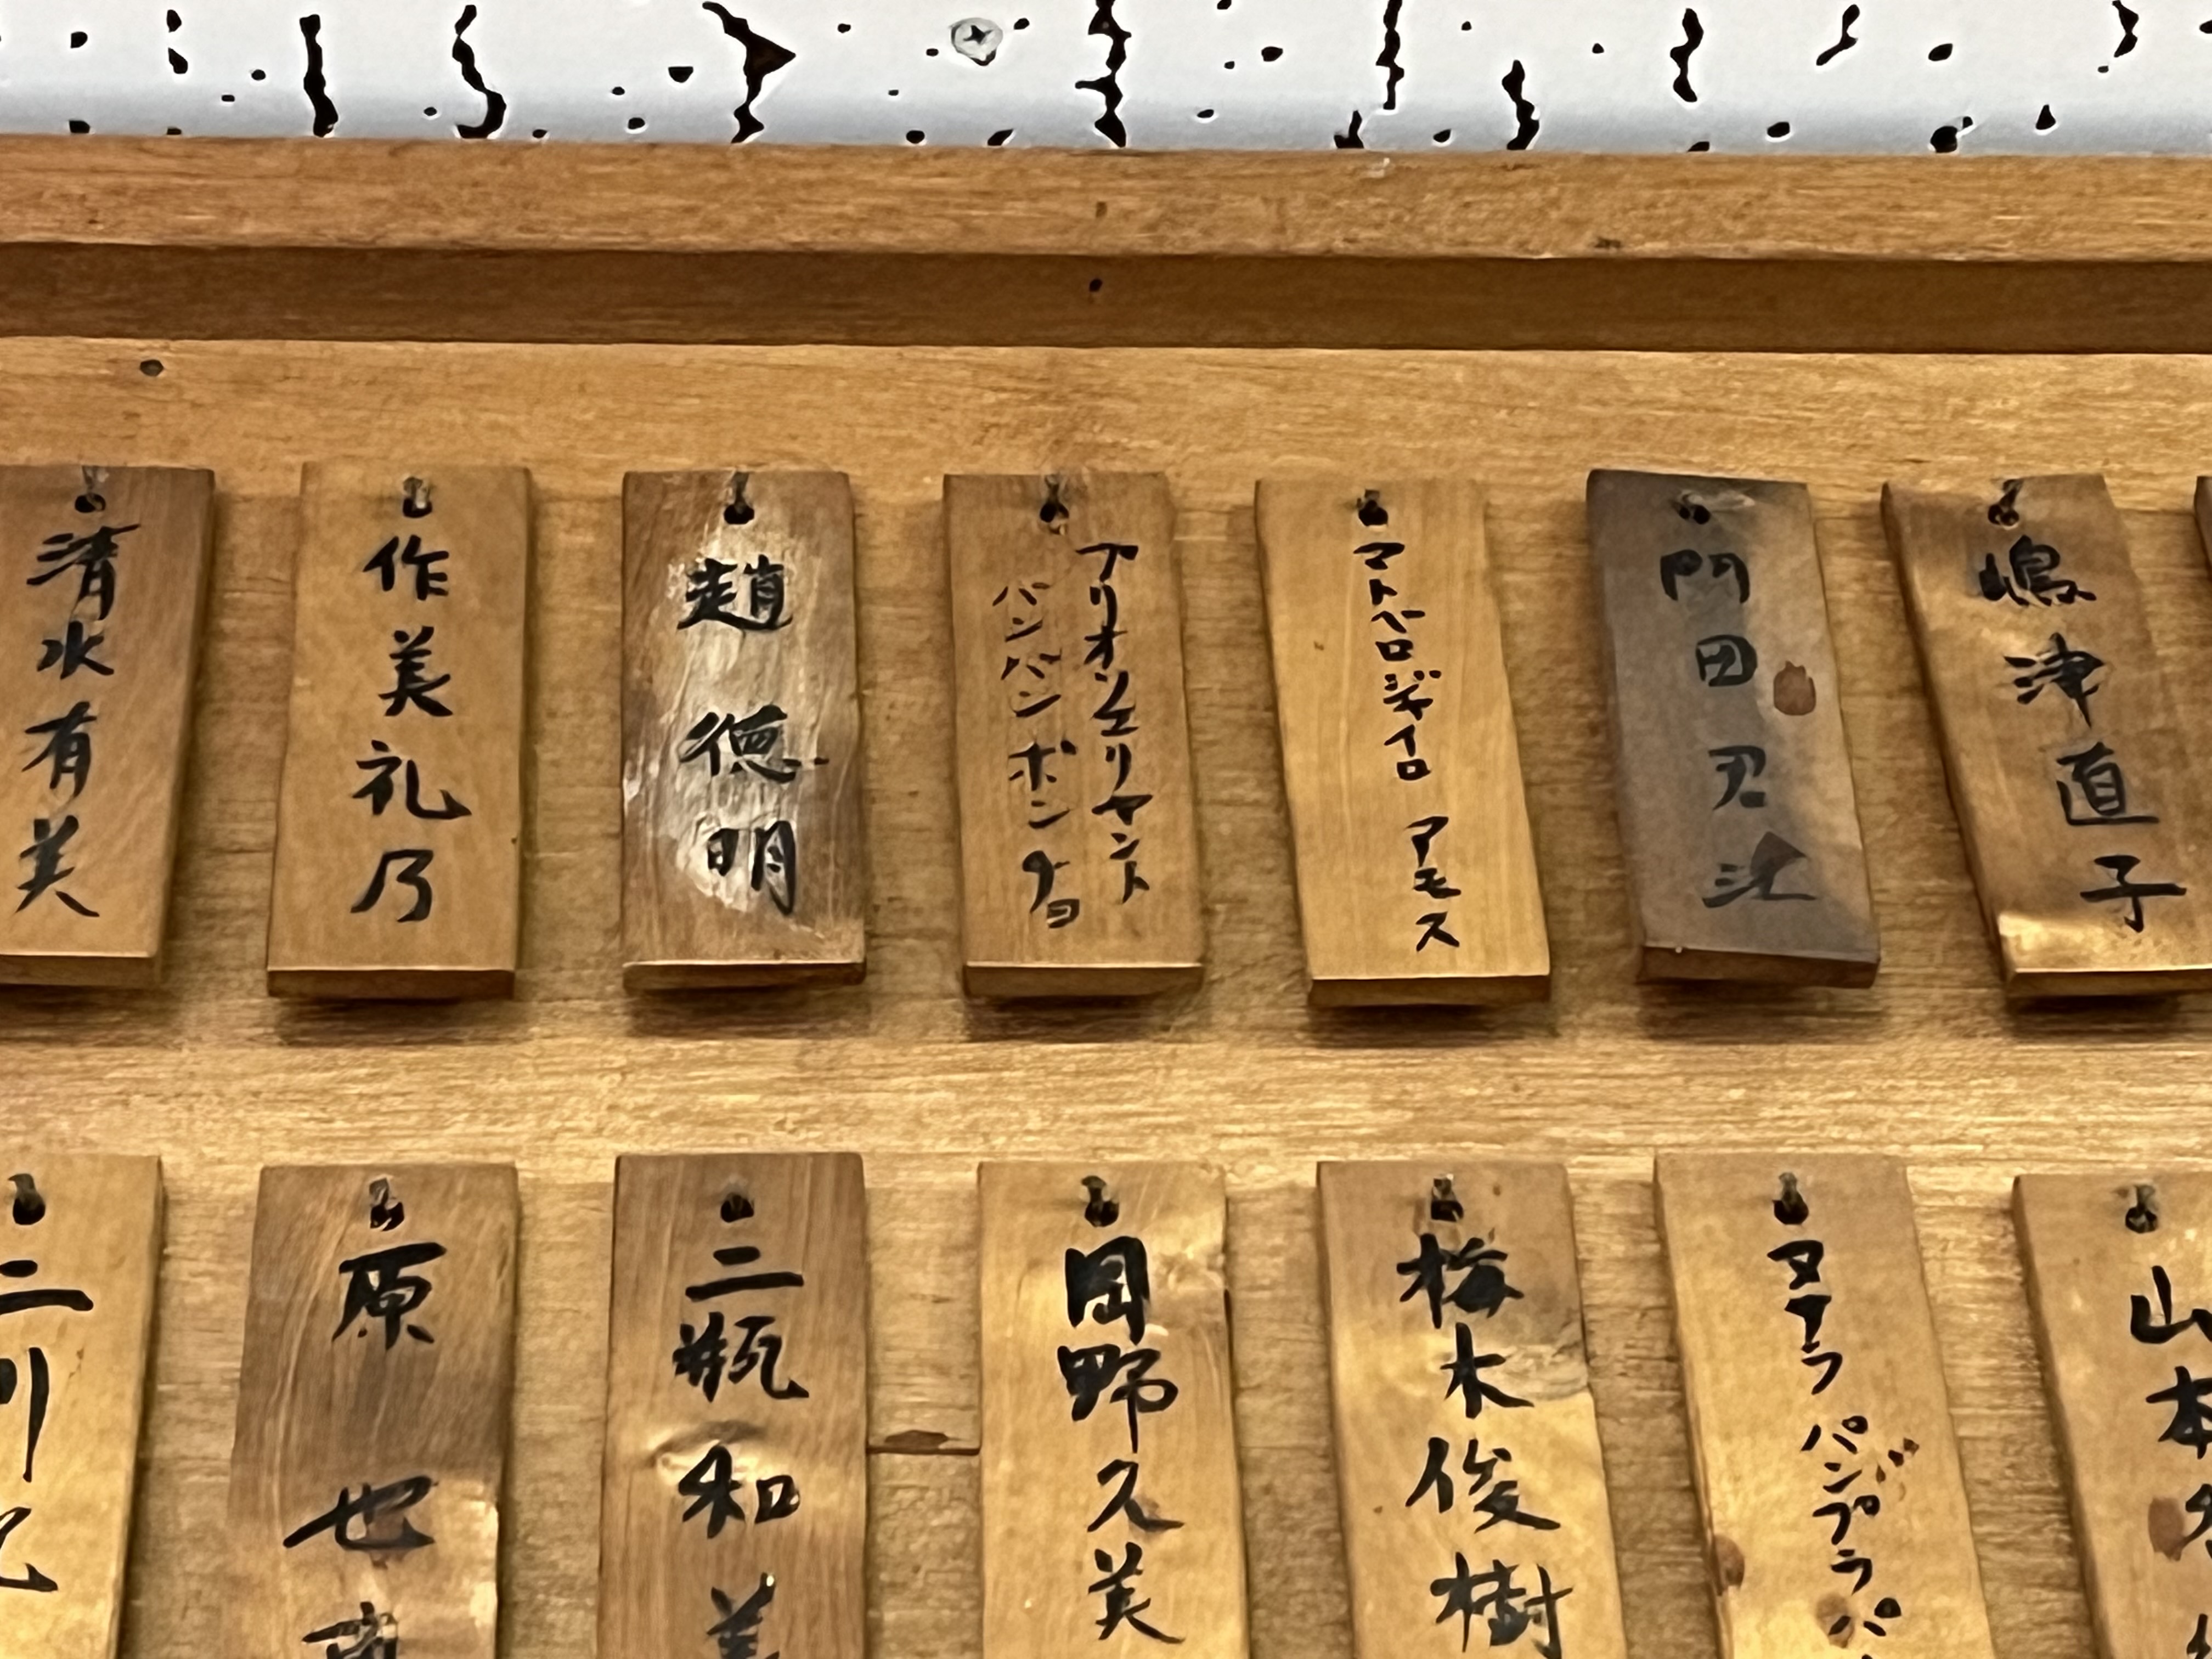 嶋津直子
門田忍
マトペロジャイロ アモス
アリオンシェリヤント
バンバン ポンチョ
趙徳明
作美礼乃
清水有美
山本
タナラ パンプラパ
梅木俊樹
岡野久美
二瓶和美
原也
二川